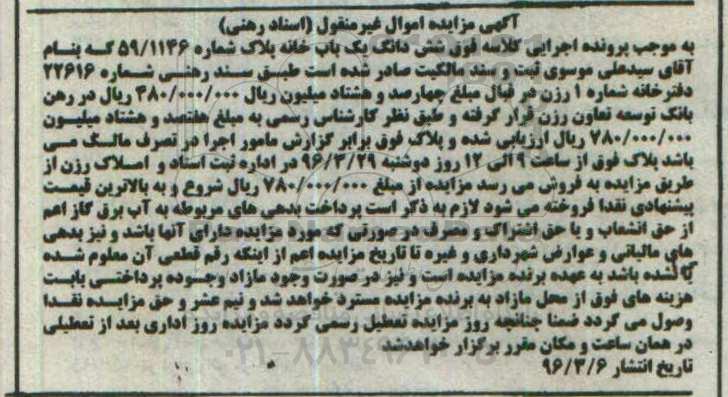 آگهی مزایده اموال غیرمنقول (اسناد رهنی)
به موجب پرونده اجرایی کلاسه فوق شش دانگ یک باب خانه پلاک شماره ۵۹/۱۱۴۶ که بنام
آقای سیدعلی موسوی ثبت و سند مالکیت صادر شده است طبق سند رهنی شماره ۲۲۶۱۶
دفترخانه شماره ۱ رزن در قبال مبلغ چهارصد و هشتاد میلیون ریال ۴۸۰/۰۰۰/۰۰۰ ریال در رهن
بانک توسعه تعاون رزن قرار گرفته و طبق نظر کارشناس رسمی به مبلغ هفتصد و هشتاد میلیون
۷۸۰/۰۰۰/۰۰۰ ریال ارزیابی شده و پلاک فوق برابر گزارش مامور اجرا در تصرف مالک می
باشد پلاک فوق از ساعت ۹ الی ۱۲ روز دوشنبه ۹۶/۳/۲۹ در اداره ثبت اسناد و املاک رزن از
طریق مزایده به فروش می رسد مزایده از مبلغ ۷۸۰/۰۰۰/۰۰۰ ریال شروع و به بالاترین قیمت
پیشنهادی نقدا فروخته می شود لازم به ذکر است پرداخت بدهی های مربوطه به آب برق گاز اعم
از حق انشعاب و یا حق اشتراک و مصرف در صورتی که مورد مزایده دارای آنها باشد و نیز بدهی
های مالیاتی و عوارض شهرداری و غیره تا تاریخ مزایده اعم از اینکه رقم قطعی آن معلوم شده
یا نشده باشد به عهده برنده مزایده است و نیز در صورت وجود مازاد وجوه پرداختی بابت
هزینه های فوق از محل مازاد به برنده مزایده مسترد خواهد شد و نیم عشر و حق مزایده نقدا
وصول می گردد ضمنا چنانچه روز مزایده تعطیل رسمی گردد مزایده روز اداری بعد از تعطیلی
در همان ساعت و مکان مقرر برگزار خواهدشد
تاریخ انتشار ۹۶/۳/۶